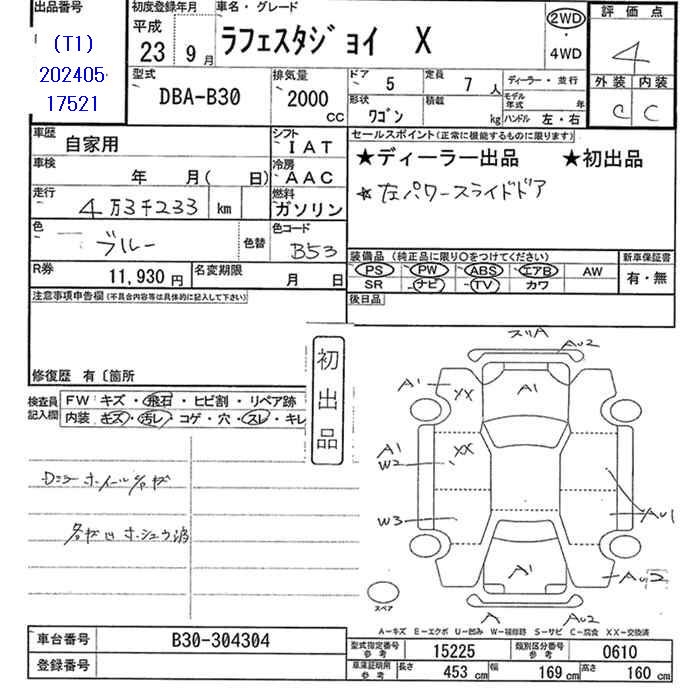 出品番号
(T1)
202405
17521
初度登録年月
平成
23 9月
車名・グレード
ラフェスタジョイ X
2WD
・
4WD
評価点
4
外装 内装
C C
型式
DBA-B30
排気量
2000
CC
ドア 5
定員 7人
形状
ワゴン
積載 kg
ディーラー・並行
モデル年式 年
ハンドル 左・右
車歴
自家用
シフト
IAT
車検
年 月( 日)
冷房
AAC
走行
4万3千233 km
燃料
ガソリン
色
ブルー
色替
色コード
B53
R券
11,930円
名変期限
月 日
セールスポイント(正常に機能するものに限ります)
★ディーラー出品 ★初出品
☆左パワースライドドア
装備品 (純正品に限り○をつけてください)
PS PW ABS エアB AW
SR ナビ TV カワ
新車保証書
有・無
後日品
注意事項申告欄(不具合内容等は具体的に記入して下さい)
修復歴 有〔箇所
初出品
検査員記入欄
FW キズ・飛石・ヒビ割・リペア跡
内装 キズ・汚レ・コゲ・穴・スレ・キレ
ホイールキズ
スリA
AU2
A1
XX
A1
A1
W2
XX
W3
AU1
A1
AU2
スペア
A
AU2
A-キズ E-エクボ U-凹み W-補修跡 S-サビ C-腐食 XX-交換済
車台番号
B30-304304
登録番号
型式指定番号
参考
15225
類別区分番号
参考
0610
車庫証明用
参考
長さ 453 cm
幅 169 cm
高さ 160 cm